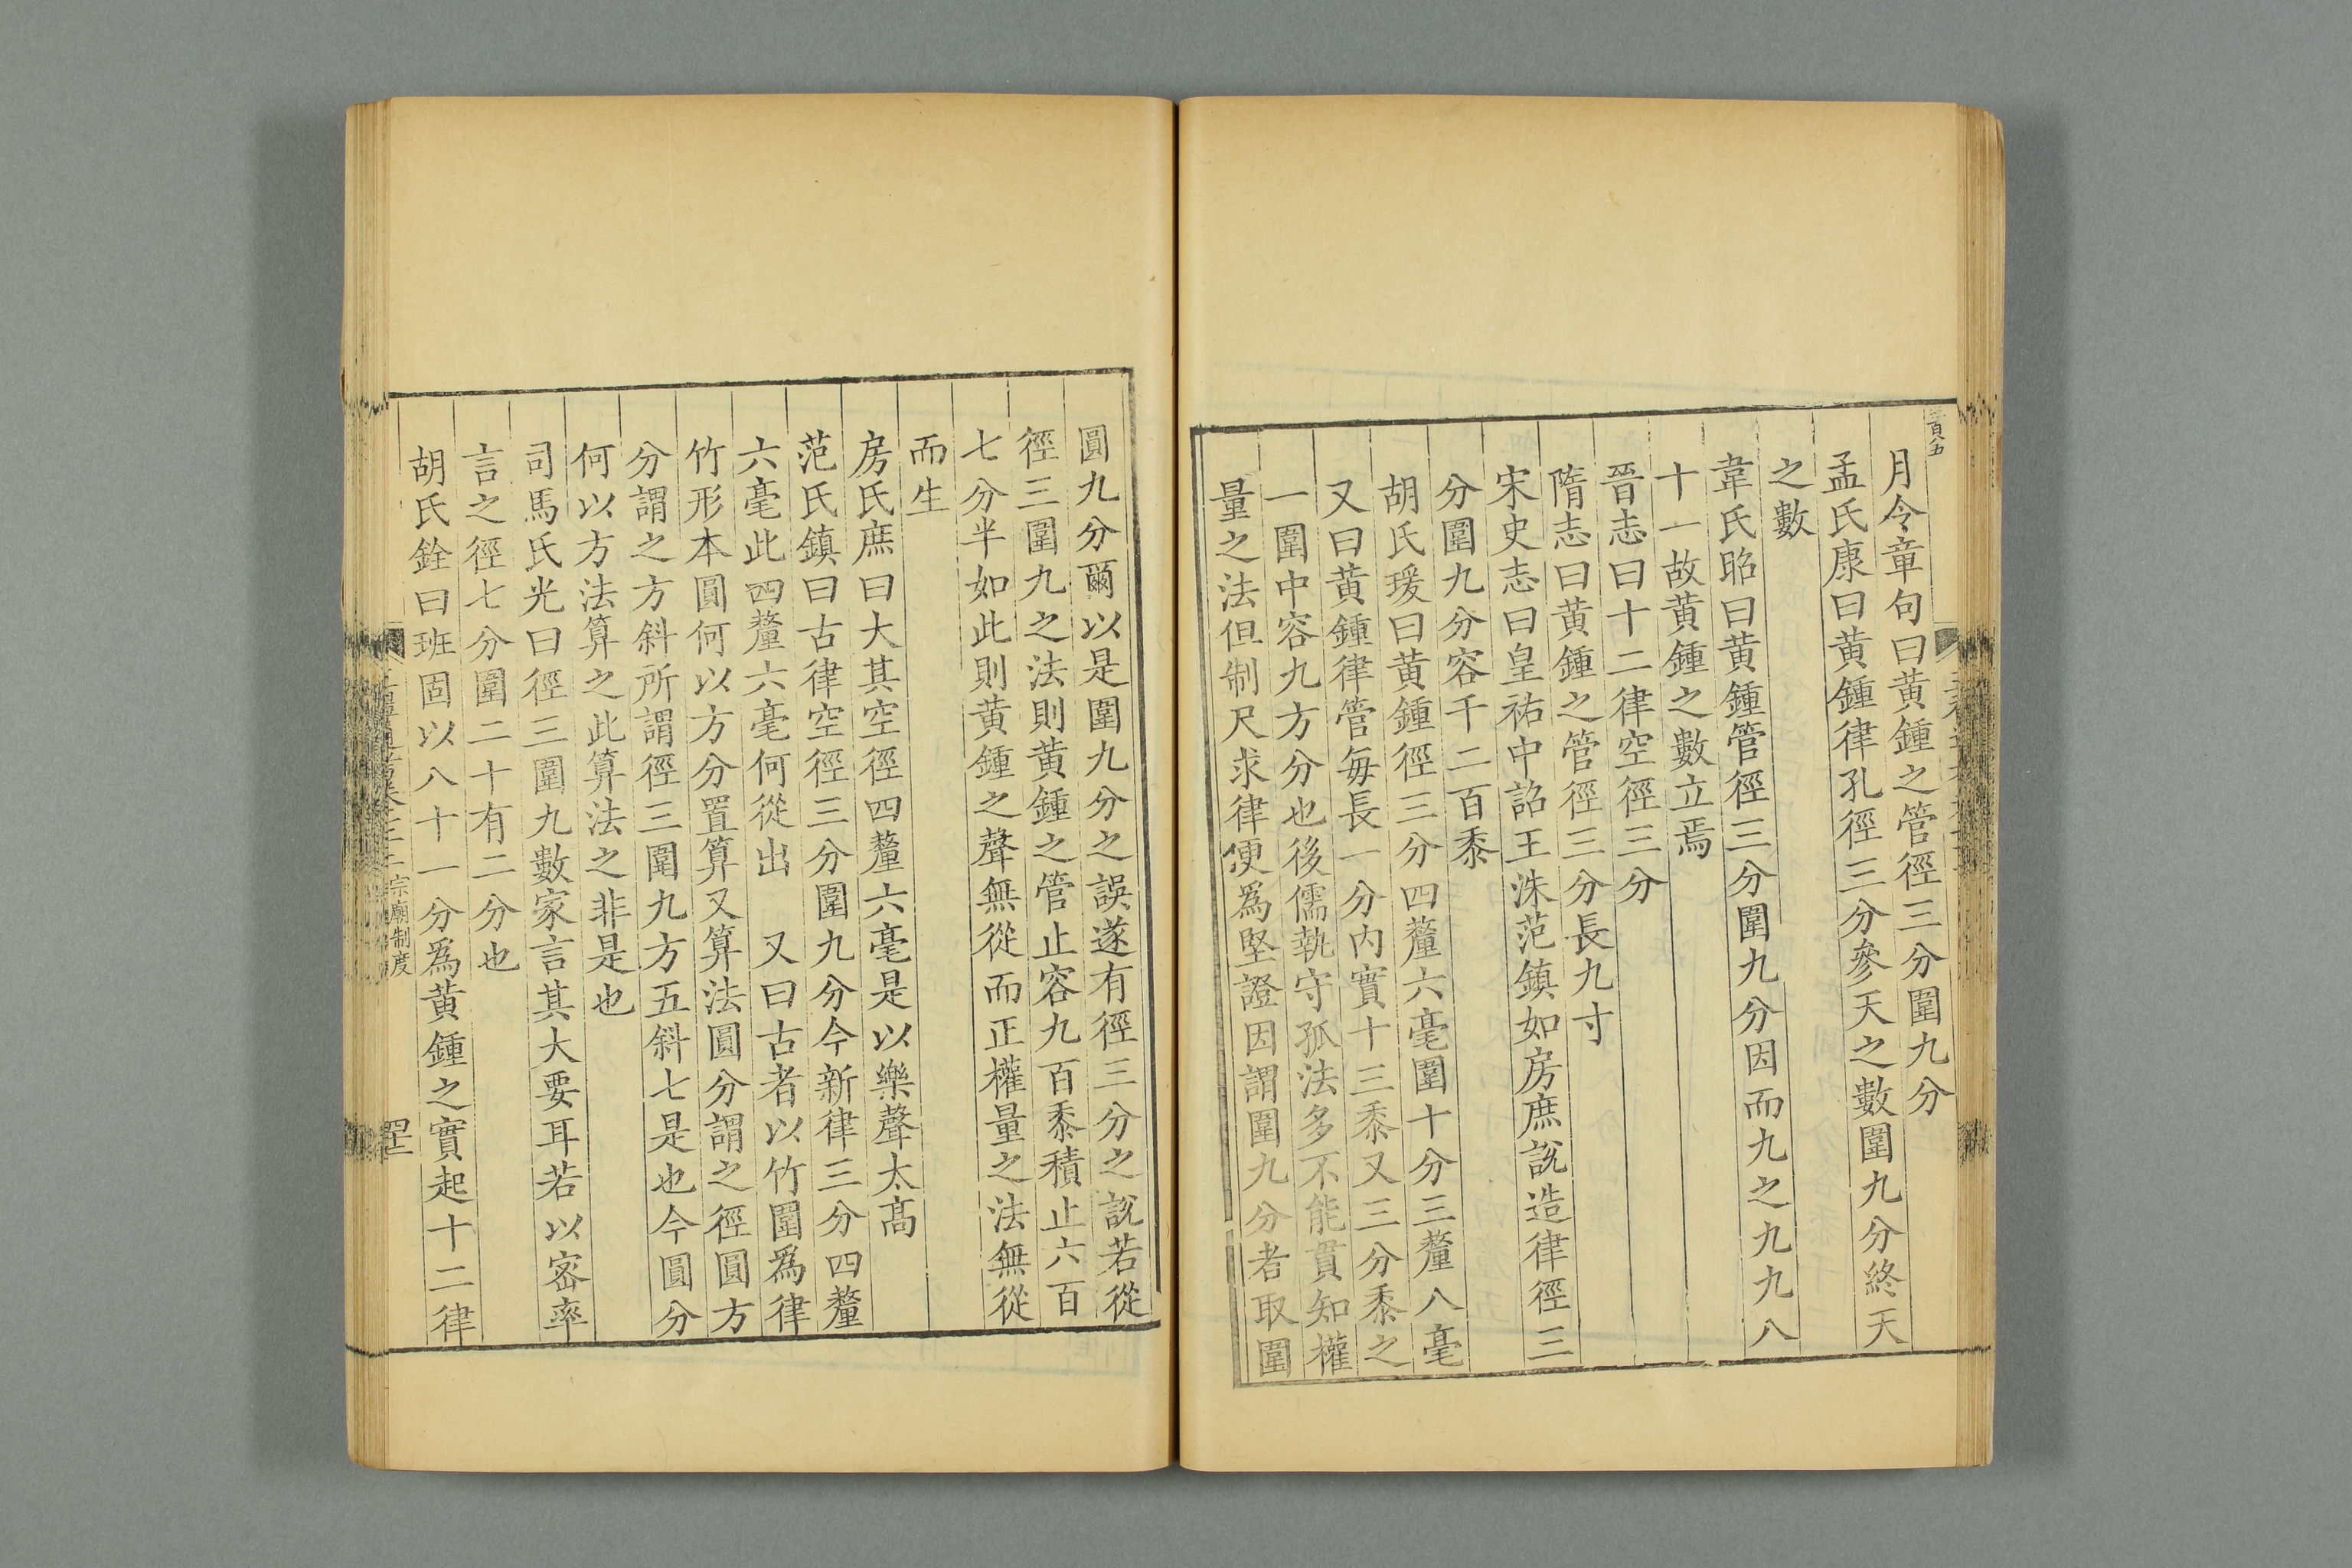 月令章句曰黄鍾之管徑三分圍九分
孟氏康曰黄鍾律孔徑三分參天之數圍九分終天
之數
韋氏昭曰黄鍾管徑三分圍九分因而九之九九八
十一故黄鍾之數立焉
晉志曰十二律空徑三分
隋志曰黄鍾之管徑三分長九寸
宋史志曰皇祐中詔王洙范鎮如房庶說造律徑三
分圍九分容千二百黍
胡氏瑗曰黄鍾徑三分四釐六毫圍十分三釐八毫
又曰黄鍾律管每長一分内實十三黍又三分黍之
一圍中容九方分也後儒執守孤法多不能貫知權
量之法但制尺求律便爲堅證因謂圍九分者取圍
圓九分爾以是圍九分之誤遂有徑三分之說若從
徑三圍九之法則黄鍾之管止容九百黍積止六百
七分半如此則黄鍾之聲無從而正權量之法無從
而生
房氏庶曰大其空徑四釐六毫是以樂聲太高
范氏鎮曰古律空徑三分圍九分今新律三分四釐
六毫此四釐六毫何從出 又曰古者以竹圍爲律
竹形本圓何以方分置算又算法圓分謂之徑圓方
分謂之方斜所謂徑三圍九方五斜七是也今圓分
何以方法算之此算法之非是也
司馬氏光曰徑三圍九數家言其大要耳若以密率
言之徑七分圍二十有二分也
胡氏銓曰班固以八十一分爲黄鍾之實起十二律
宗廟制度